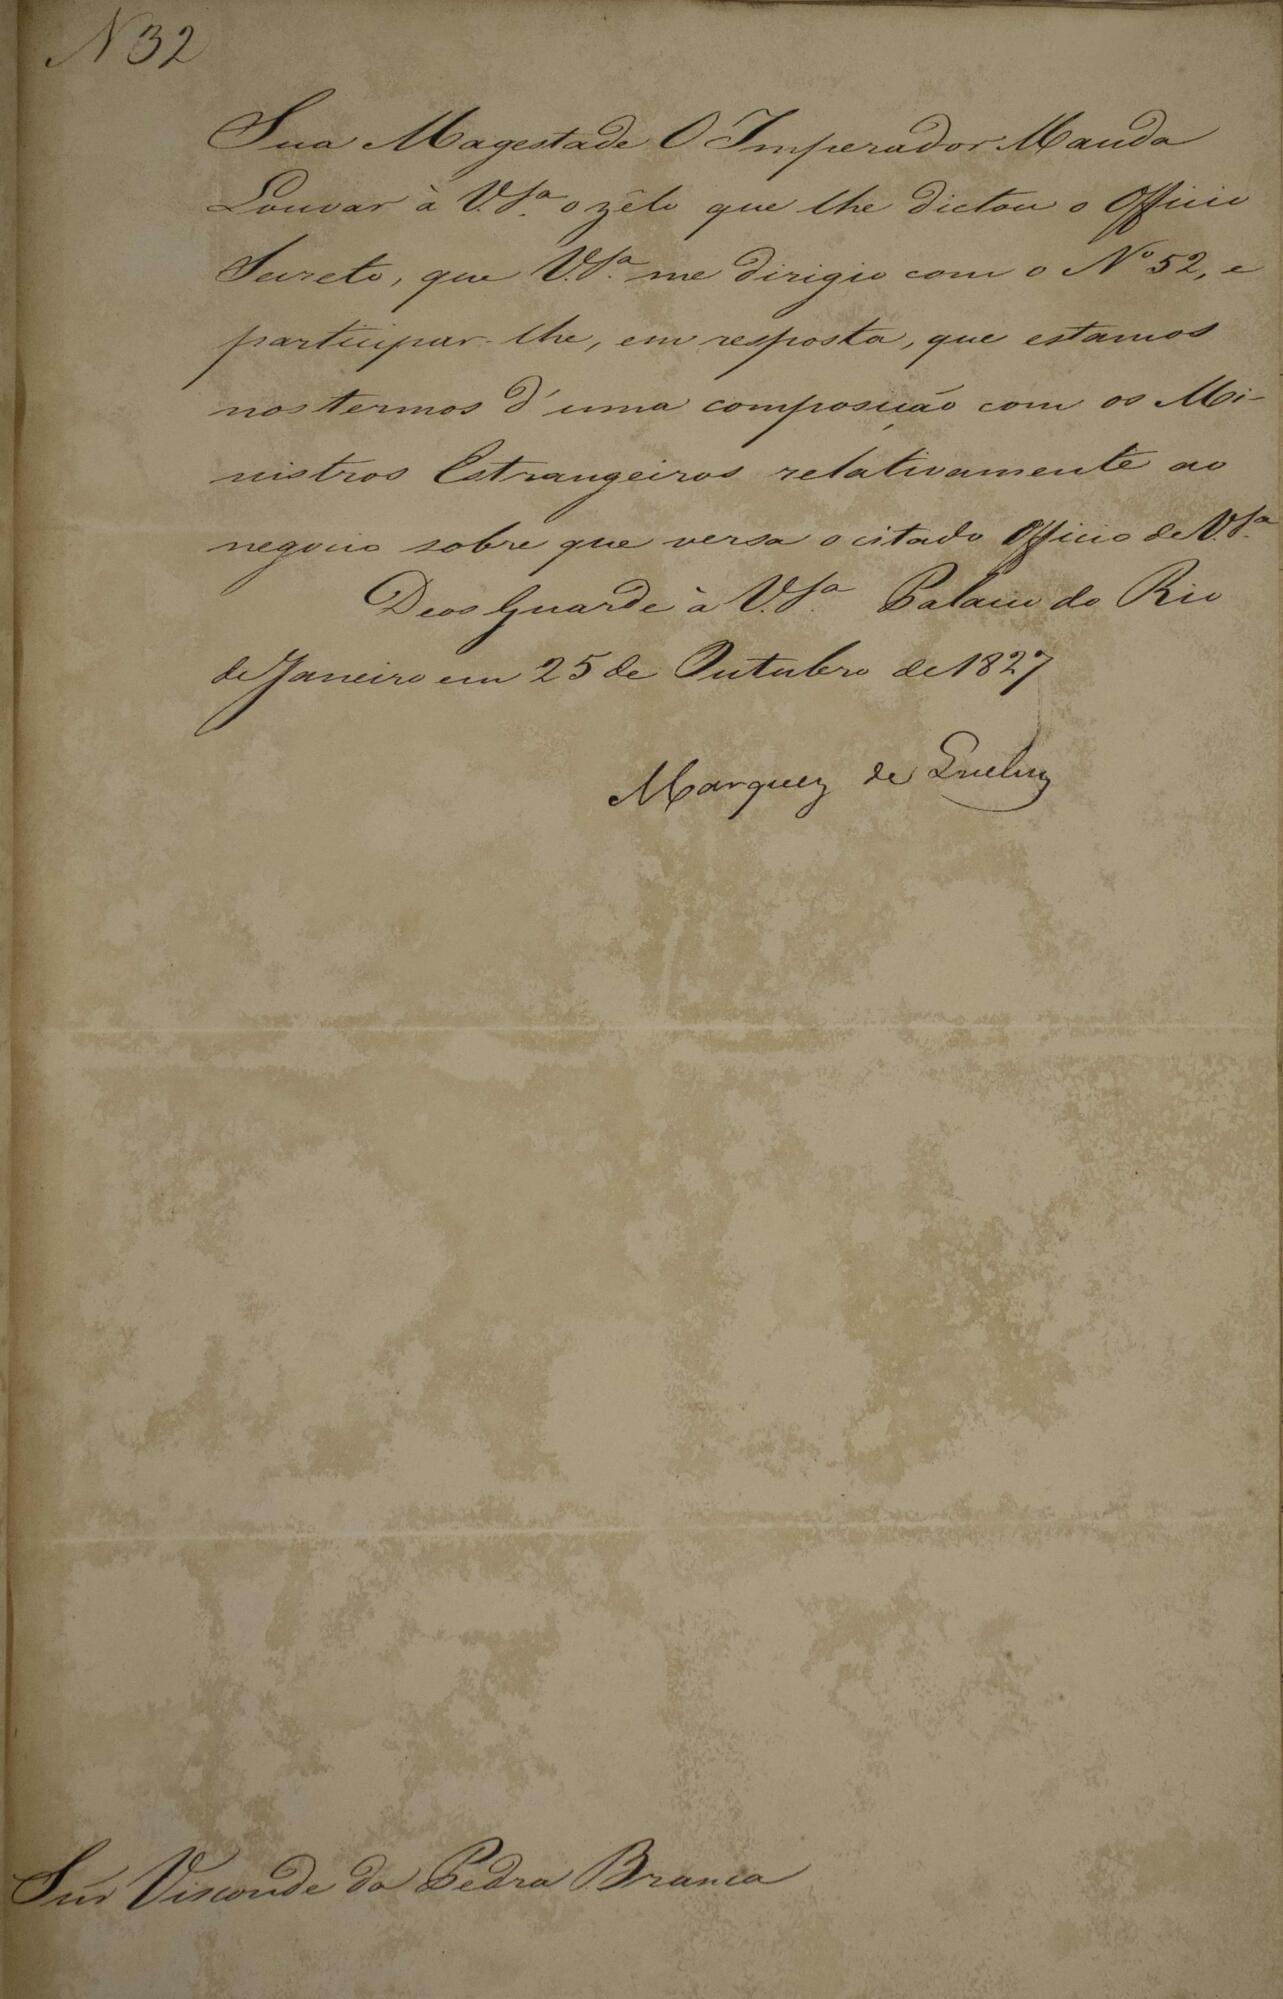 N 32
Sua Magestade O Imperador Manda
Louvar à V.Sª. o zêlo que lhe dictou o Officio
Secreto, que V.Sª. me dirigio com o Nº 52, e
participar-lhe, em resposta, que estamos
nos termos d'uma composição com os Mi-
nistros Estrangeiros relativamente ao
negocio sobre que versa o citado Officio de V.Sª.
Deos Guarde à V.Sª. Palacio do Rio
de Janeiro em 25 de Outubro de 1827
Marquez de Queluz
Snr Visconde da Pedra Branca